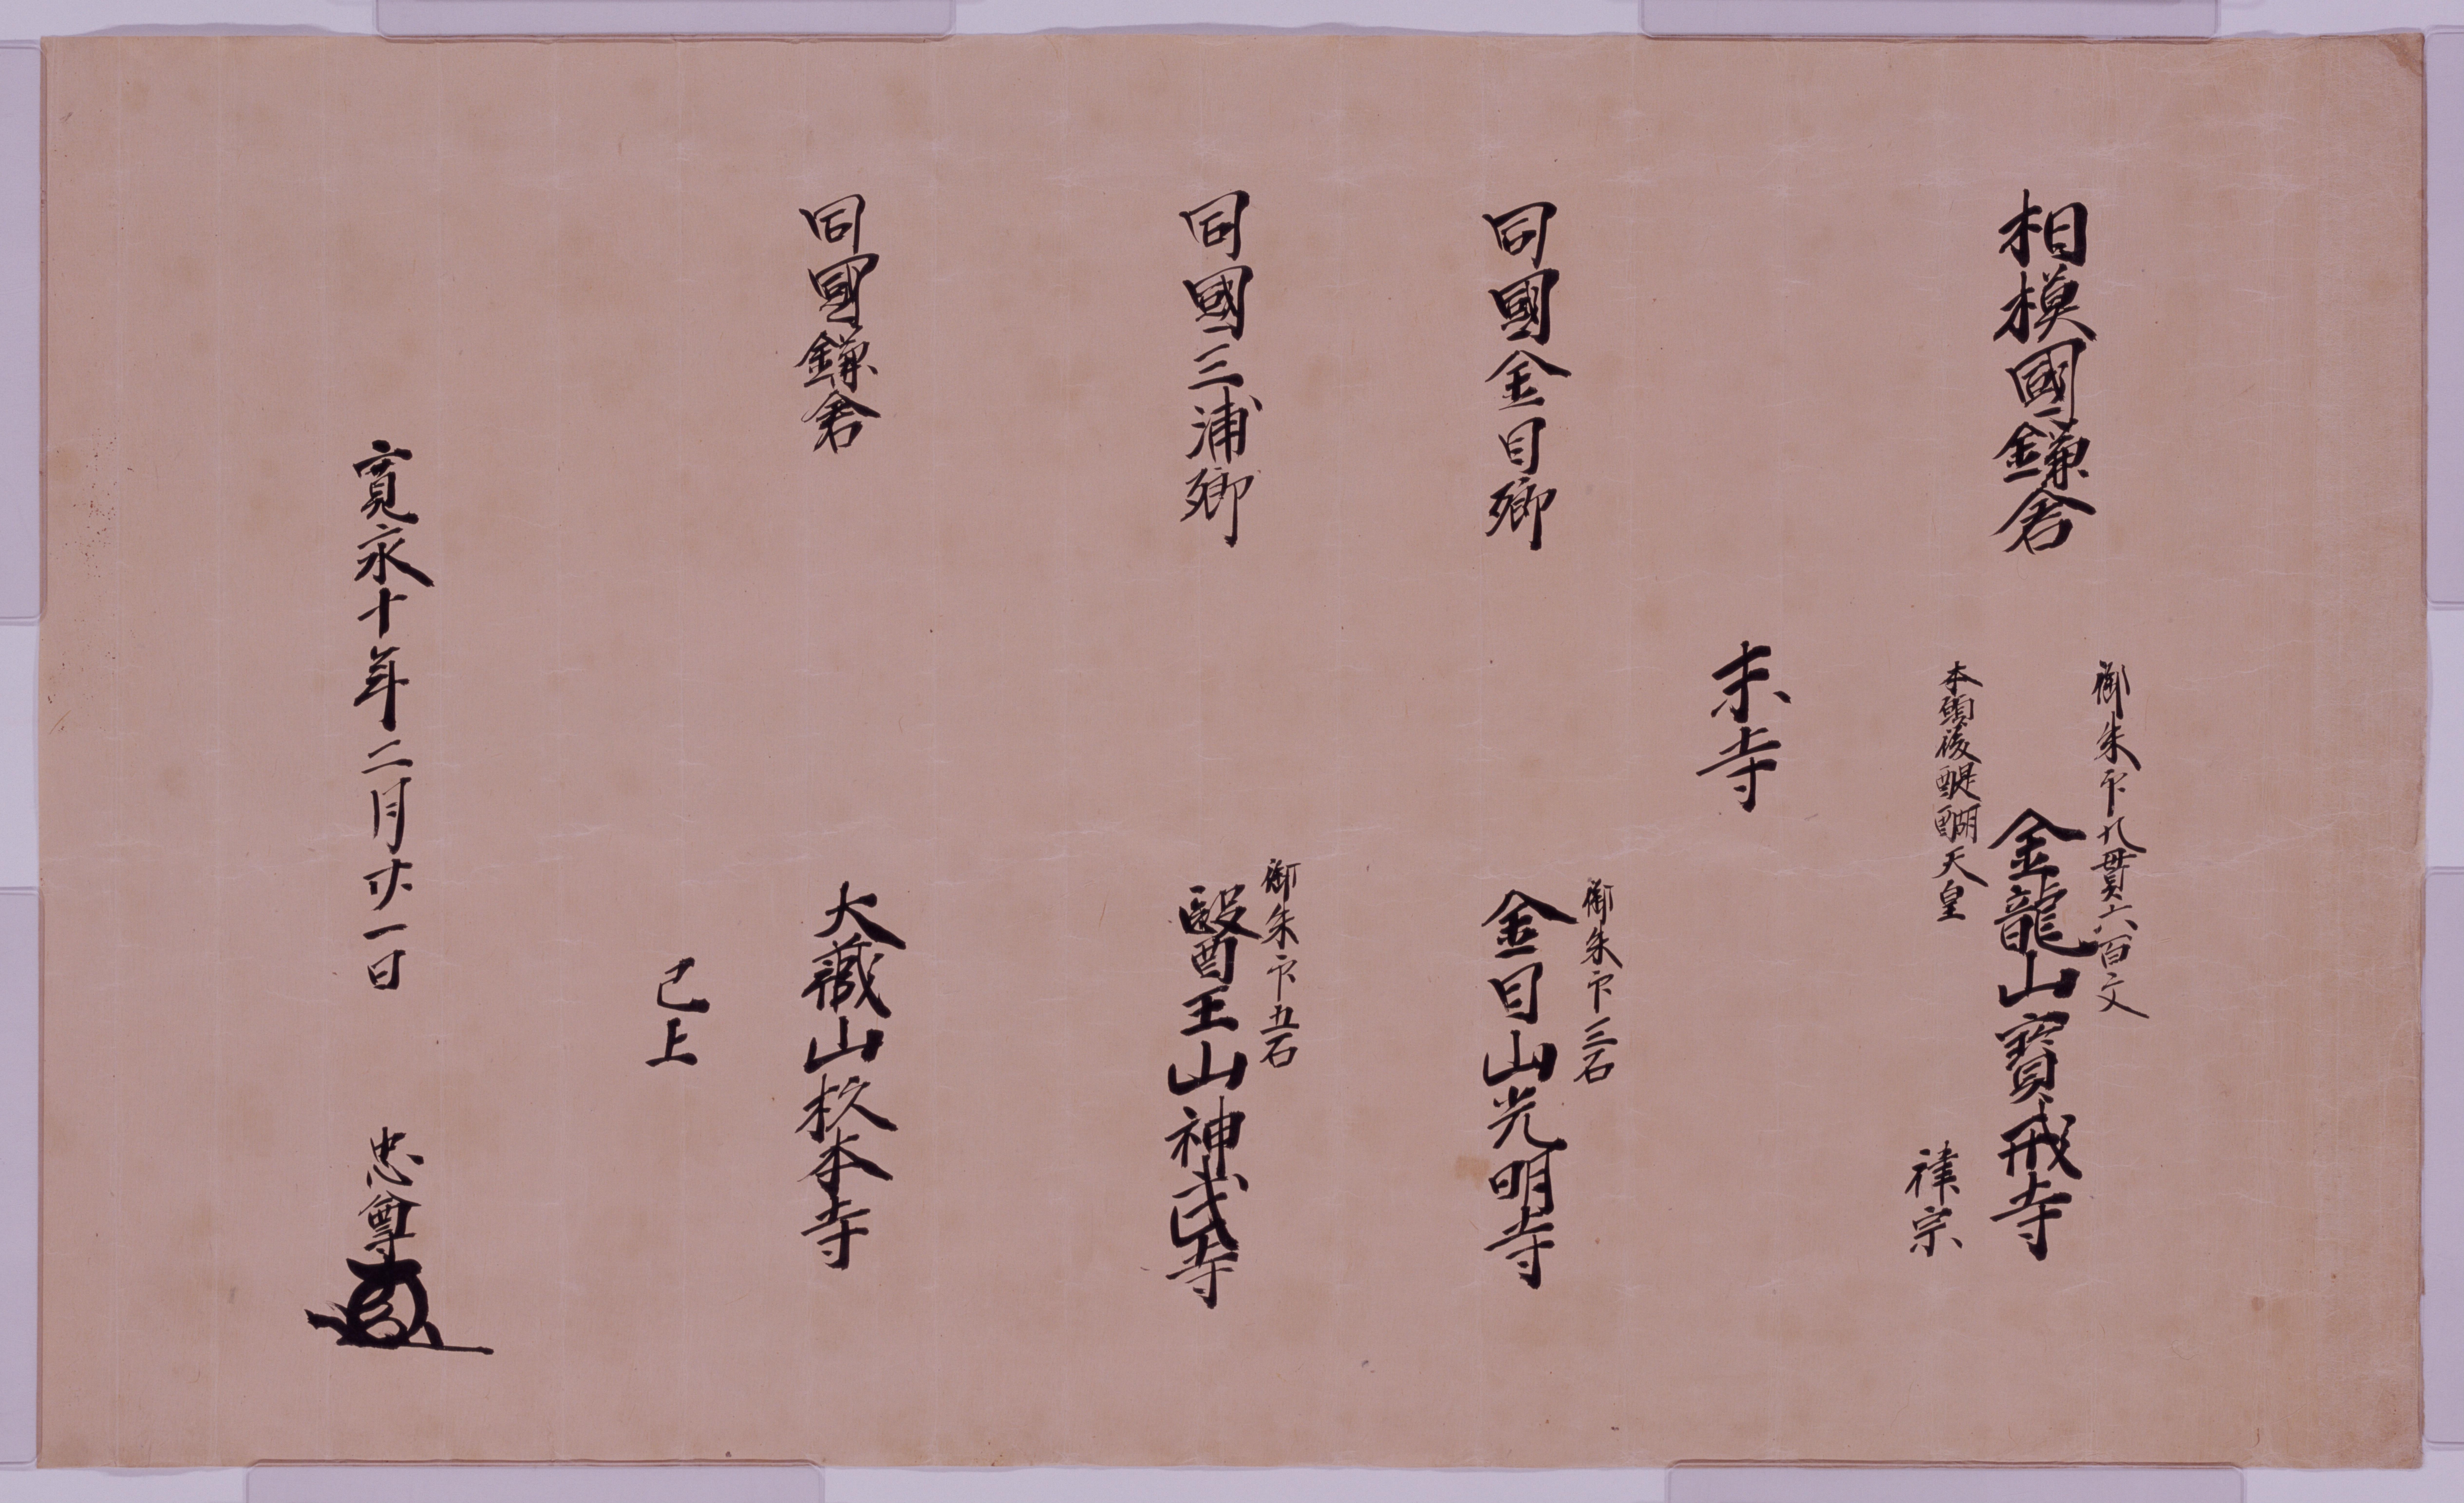 相模國鎌倉
御朱印九貫六百文
金龍山寳戒寺
本願後醍醐天皇
律宗
末寺
同國金目郷
御朱印三石
金目山光明寺
同國三浦郷
御朱印五石
醫王山神武寺
同國鎌倉
大藏山杦本寺
已上
寛永十年二月廿一日
忠尊